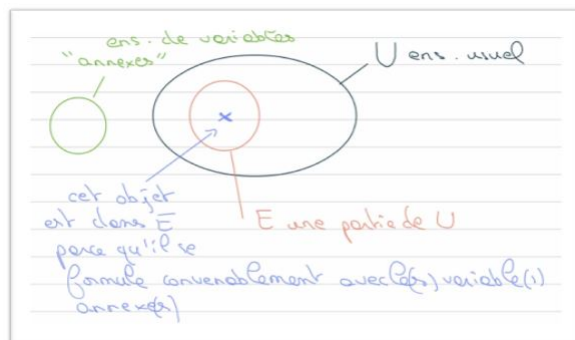 ens. de variables
"annexes"
U ens. usuel
cet objet
est dans E
parce qu'il se
formule convenablement avec le(s) variable(s)
annexe(s)
E une partie de U